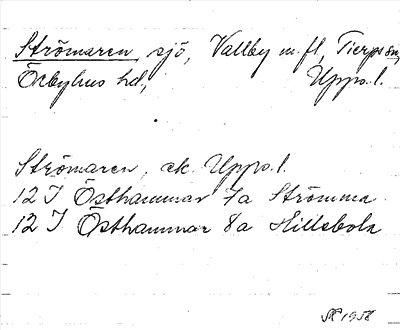 Strömaren, sjö, Vallby m.fl., Tierps sn,
Örbyhus hd, Upps. l.
Strömaren, ek. Upps. l.
12 I Östhammar 7a Strömma
12 I Östhammar 8a Hillebola
1958